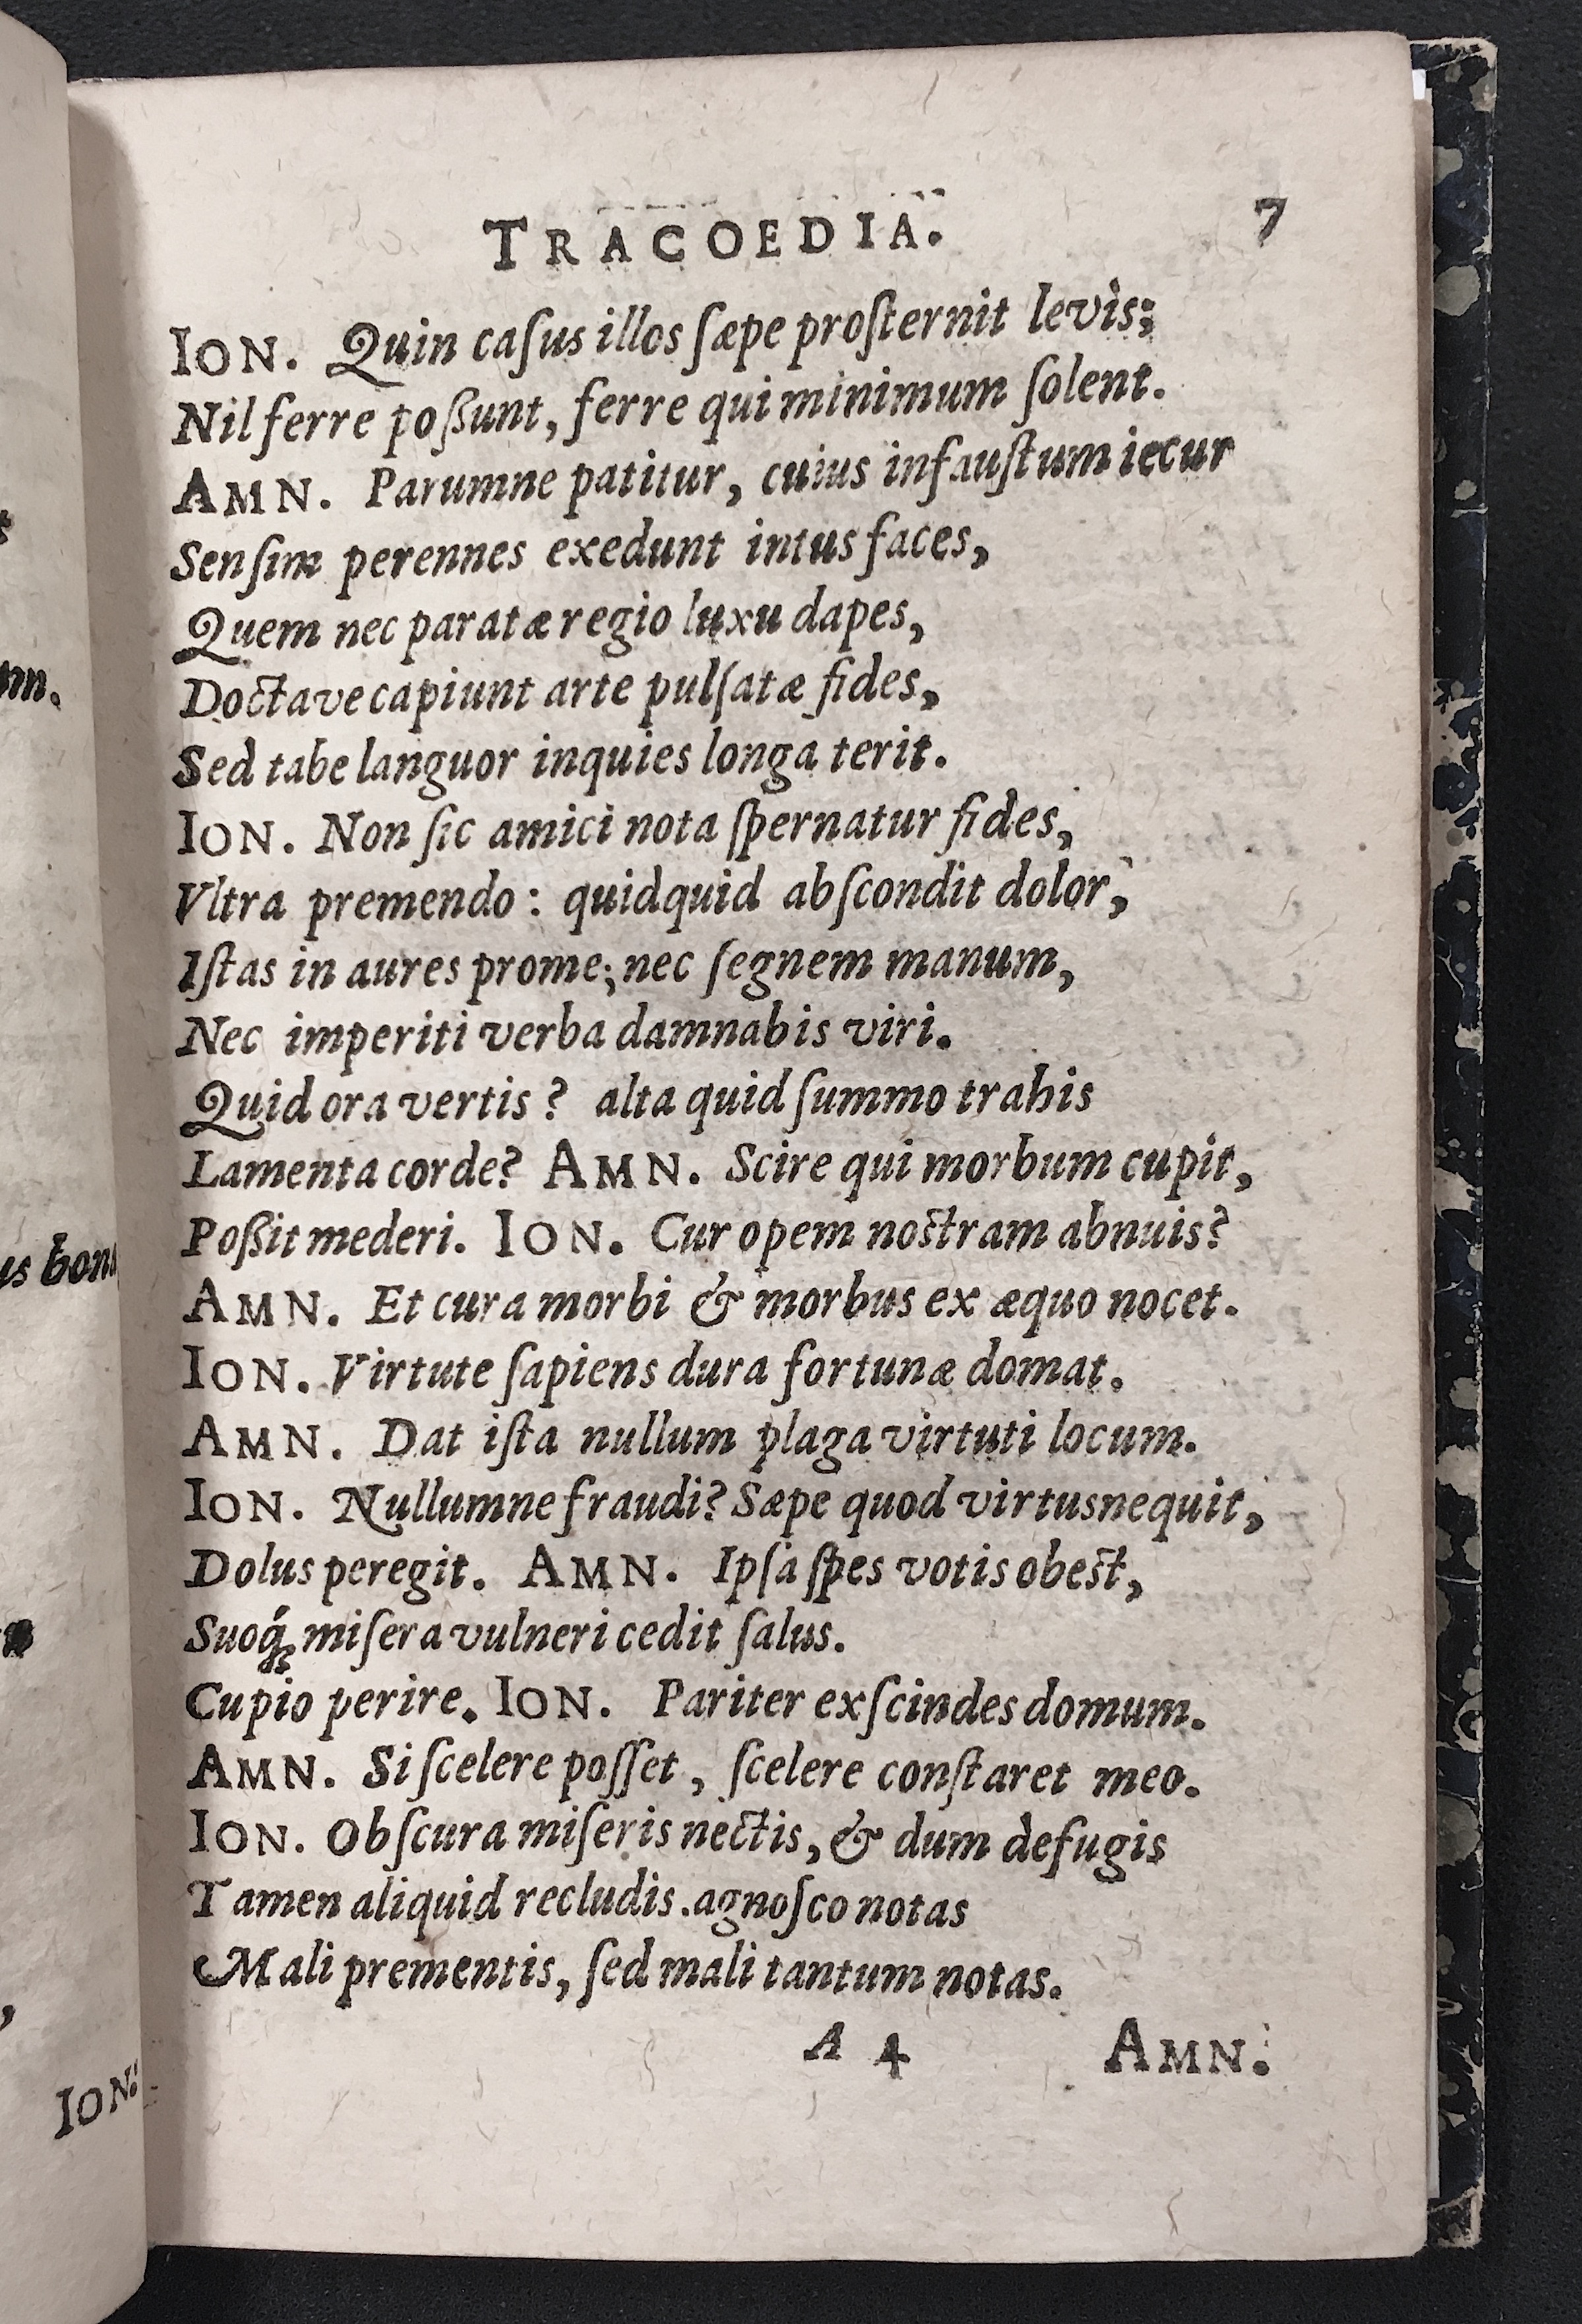 TRACOEDIA. 7
ION. Quin caſus illos ſæpe proſternit levìs;
Nil ferre poßunt, ferre qui minimum ſolent.
AMN. Parumne patitur, cuius infauſtum iecur
Senſim perennes exedunt intus faces,
Quem nec paratæ regio luxu dapes,
Doctave capiunt arte pulſatæ fides,
Sed tabe languor inquies longa terit.
ION. Non ſic amici nota ſpernatur fides,
Vltra premendo: quidquid abſcondit dolor,
Iſtas in aures prome; nec ſegnem manum,
Nec imperiti verba damnabis viri.
Quid ora vertis? alta quid ſummo trahis
Lamenta corde? AMN. Scire qui morbum cupit,
Poßit mederi. ION. Cur opem nostram abnuis?
AMN. Et cura morbi & morbus ex æquo nocet.
ION. Virtute ſapiens dura fortunæ domat.
AMN. Dat iſta nullum plaga virtuti locum.
ION. Nullumne fraudi? Sæpe quod virtus nequit,
Dolus peregit. AMN. Ipſa ſpes votis obest,
Suoq́ꝫ miſera vulneri cedit ſalus.
Cupio perire. ION. Pariter exſcindes domum.
AMN. Si ſcelere poſſet, ſcelere conſtaret meo.
ION. Obſcura miſeris nectis, & dum defugis
Tamen aliquid recludis. agnoſco notas
Mali prementis, ſed mali tantum notas.
A 4 AMN.
us bon
ION.